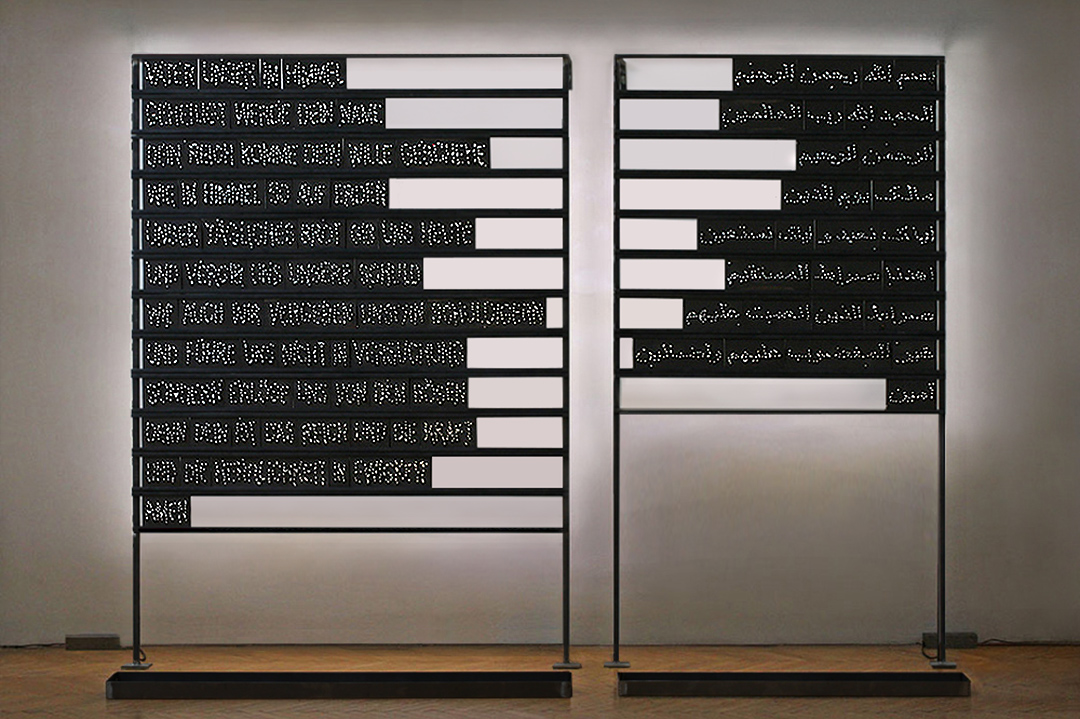 VATER UNSER IM HIMMEL
GEHEILIGT WERDE DEIN NAME
DEIN REICH KOMME DEIN WILLE GESCHEHE
WIE IM HIMMEL SO AUF ERDEN
UNSER TÄGLICHES BROT GIB UNS HEUTE
UND VERGIB UNS UNSERE SCHULD
WIE AUCH WIR VERGEBEN UNSEREN SCHULDIGERN
UND FÜHRE UNS NICHT IN VERSUCHUNG
SONDERN ERLÖSE UNS VON DEM BÖSEN
DENN DEIN IST DAS REICH UND DIE KRAFT
UND DIE HERRLICHKEIT IN EWIGKEIT
AMEN
بسم الله الرحمن الرحيم
الحمد لله رب العالمين
الرحمن الرحيم
مالك يوم الدين
اياك نعبد و اياك نستعين
اهدنا الصراط المستقيم
صراط الذين انعمت عليهم
غير المغضوب عليهم ولا الضالين
امين